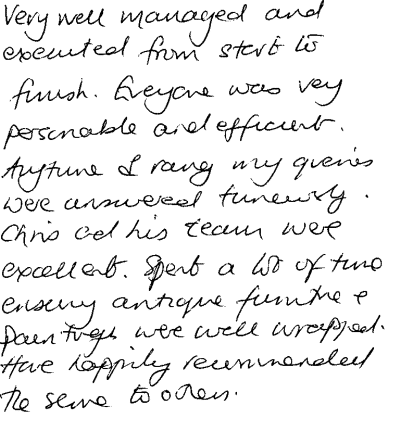 Very well managed and
executed from start to
finish. Everyone was very
personable and efficient.
Anytime I rang my queries
were answered timeously.
Chris and his team were
excellent. Spent a lot of time
ensuring antique furniture &
paintings were well wrapped.
Have happily recommended
the same to others.